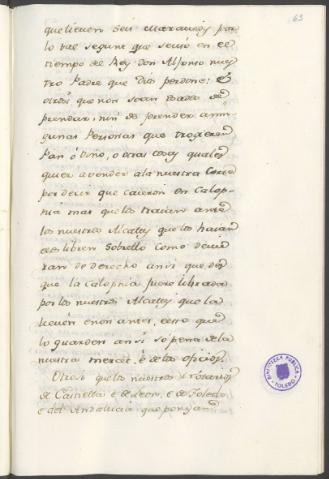 63
que lieven seu maravedis por
lo tal segunt que se usó en el
tiempo de Rey don Alfonso nues
tro Padre que Dios perdone: E
otrosi que non sean osados de
prendar, nin de prender a nin
gunas Personas que trogeren
Pan ó vino, o otras cosas quales
quier a vender ala nuestra Corte
por decir que caieron en Calop
nia mas que los traian ante
los nuestros Alcalles que los haian
de librar sobrello como devie
ran de derecho ansi que des
que la Calopnia fuere librada
por los nuestros Alcalles que la
lieven é non antes, e esto que
lo guarden ansi so pena de la
nuestra merced, é de los oficios.
Otrosi que los nuestros Notarios
de Castiella é de Leon, é de Toledo
é del Andalucia que pongan
BIBLIOTECA PUBLICA
TOLEDO